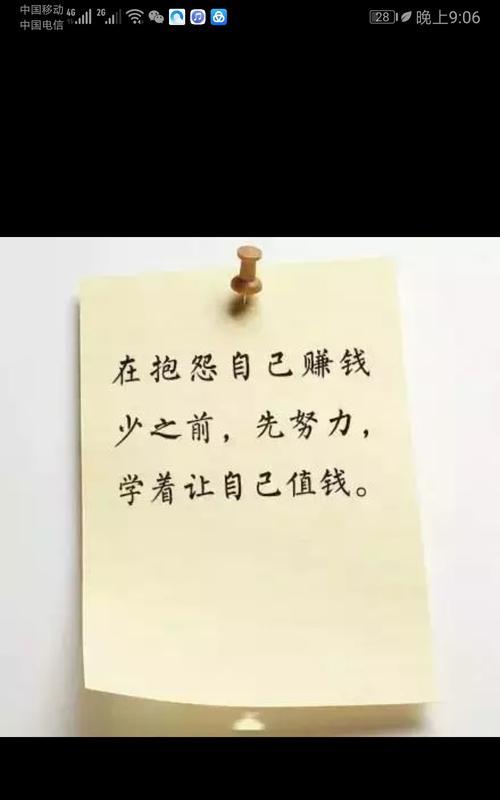 中国移动 4G 2G 28 晚上9:06
中国电信
在抱怨自己赚钱
少之前，先努力，
学着让自己值钱。